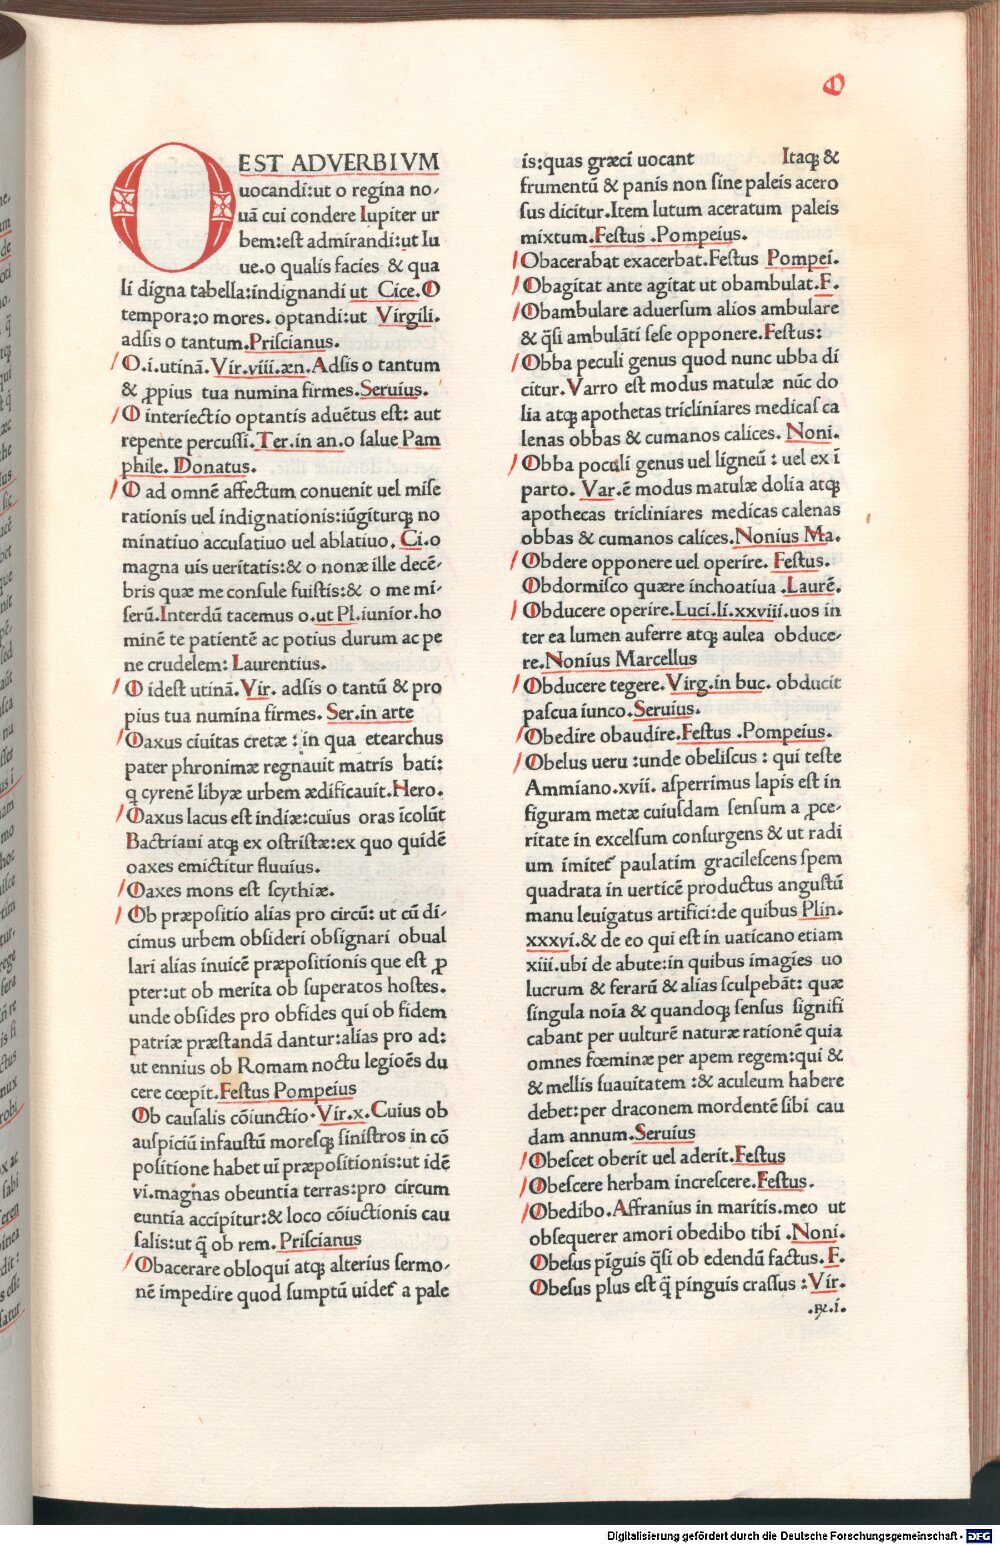 O
O EST ADVERBIVM
uocandi:ut o regina no-
uā cui condere Iupiter ur
bem:est admirandi:ut Iu
ue.o qualis facies & qua
li digna tabella:indignandi ut Cice.O
tempora:o mores. optandi:ut Virgili.
adsis o tantum.Priscianus.
O.i.utinā.Vir.viii.æn.Adsis o tantum
& ꝓpius tua numina firmes.Seruius.
O interiectio optantis aduētus est: aut
repente percussi.Ter.in an.o salue Pam
phile. Donatus.
O ad omnē affectum conuenit uel mise
rationis uel indignationis:iūgiturqꝫ no
minatiuo accusatiuo uel ablatiuo. Ci.o
magna uis ueritatis:& o nonæ ille decē-
bris quæ me consule fuistis:& o me mi-
serū.Interdū tacemus o.ut Pl.iunior.ho
minē te patientē ac potius durum ac pe
ne crudelem: Laurentius.
O idest utinā.Vir. adsis o tantū & pro
pius tua numina firmes. Ser.in arte
Oaxus ciuitas cretæ : in qua etearchus
pater phronimæ regnauit matris bati:
q cyrenē libyæ urbem ædificauit.Hero.
Oaxus lacus est indiæ:cuius oras icolūt
Bactriani atqꝫ ex ostristæ:ex quo quidē
oaxes emictitur fluuius.
Oaxes mons est scythiæ.
Ob præpositio alias pro circū: ut cū di-
cimus urbem obsideri obsignari obual
lari alias inuicē præpositionis que est ꝓ
pter:ut ob merita ob superatos hostes.
unde obsides pro obfides qui ob fidem
patriæ præstandā dantur:alias pro ad:
ut ennius ob Romam noctu legioēs du
cere cœpit.Festus Pompeius
Ob causalis cōiunctio.Vir.x.Cuius ob
auspiciū infaustū moresqꝫ sinistros in cō
positione habet uī præpositionis:ut idē
vi.magnas obeuntia terras:pro circum
euntia accipitur:& loco cōiuctionis cau
salis:ut q̄ ob rem. Priscianus
Obacerare obloqui atqꝫ alterius sermo-
nē impedire quod sumptū uidet᷑ a pale
is:quas græci uocant Itaqꝫ &
frumentū & panis non sine paleis acero
sus dicitur.Item lutum aceratum paleis
mixtum.Festus .Pompeius.
Obacerabat exacerbat.Festus Pompei.
Obagitat ante agitat ut obambulat.F.
Obambulare aduersum alios ambulare
& q̄si ambulāti sese opponere.Festus:
Obba peculi genus quod nunc ubba di
citur. Varro est modus matulæ nūc do
lia atqꝫ apothetas tricliniares medicas ca
lenas obbas & cumanos calices. Noni.
Obba poculi genus uel ligneū : uel ex ī
parto. Var.ē modus matulæ dolia atqꝫ
apothecas tricliniares medicas calenas
obbas & cumanos calices.Nonius Ma.
Obdere opponere uel operire. Festus.
Obdormisco quære inchoatiua .Laurē.
Obducere operire.Luci.li.xxviii.uos in
ter ea lumen auferre atqꝫ aulea obduce-
re.Nonius Marcellus
Obducere tegere.Virg.in buc. obducit
pascua iunco.Seruius.
Obedire obaudire.Festus .Pompeius.
Obelus ueru :unde obeliscus : qui teste
Ammiano.xvii. asperrimus lapis est in
figuram metæ cuiusdam sensum a ꝓce-
ritate in excelsum consurgens & ut radi
um imitet᷑ paulatim gracilescens spem
quadrata in uerticē productus angustū
manu leuigatus artifici:de quibus Plin.
xxxvi.& de eo qui est in uaticano etiam
xiii.ubi de abute:in quibus imagies uo
lucrum & ferarū & alias sculpebāt: quæ
singula noīa & quandoqꝫ sensus signifi
cabant per uulturē naturæ rationē quia
omnes fœminæ per apem regem:qui &
& mellis suauitatem :& aculeum habere
debet:per draconem mordentē sibi cau
dam annum.Seruius
Obescet oberit uel aderit.Festus
Obescere herbam increscere.Festus.
Obedibo.Affranius in maritis.meo ut
obsequerer amori obedibo tibi .Noni.
Obesus piguis q̄si ob edendū factus.F.
Obesus plus est q̄ pinguis crassus :Vir.
Digitalisierung gefördert durch die Deutsche Forschungsgemeinschaft - DFG